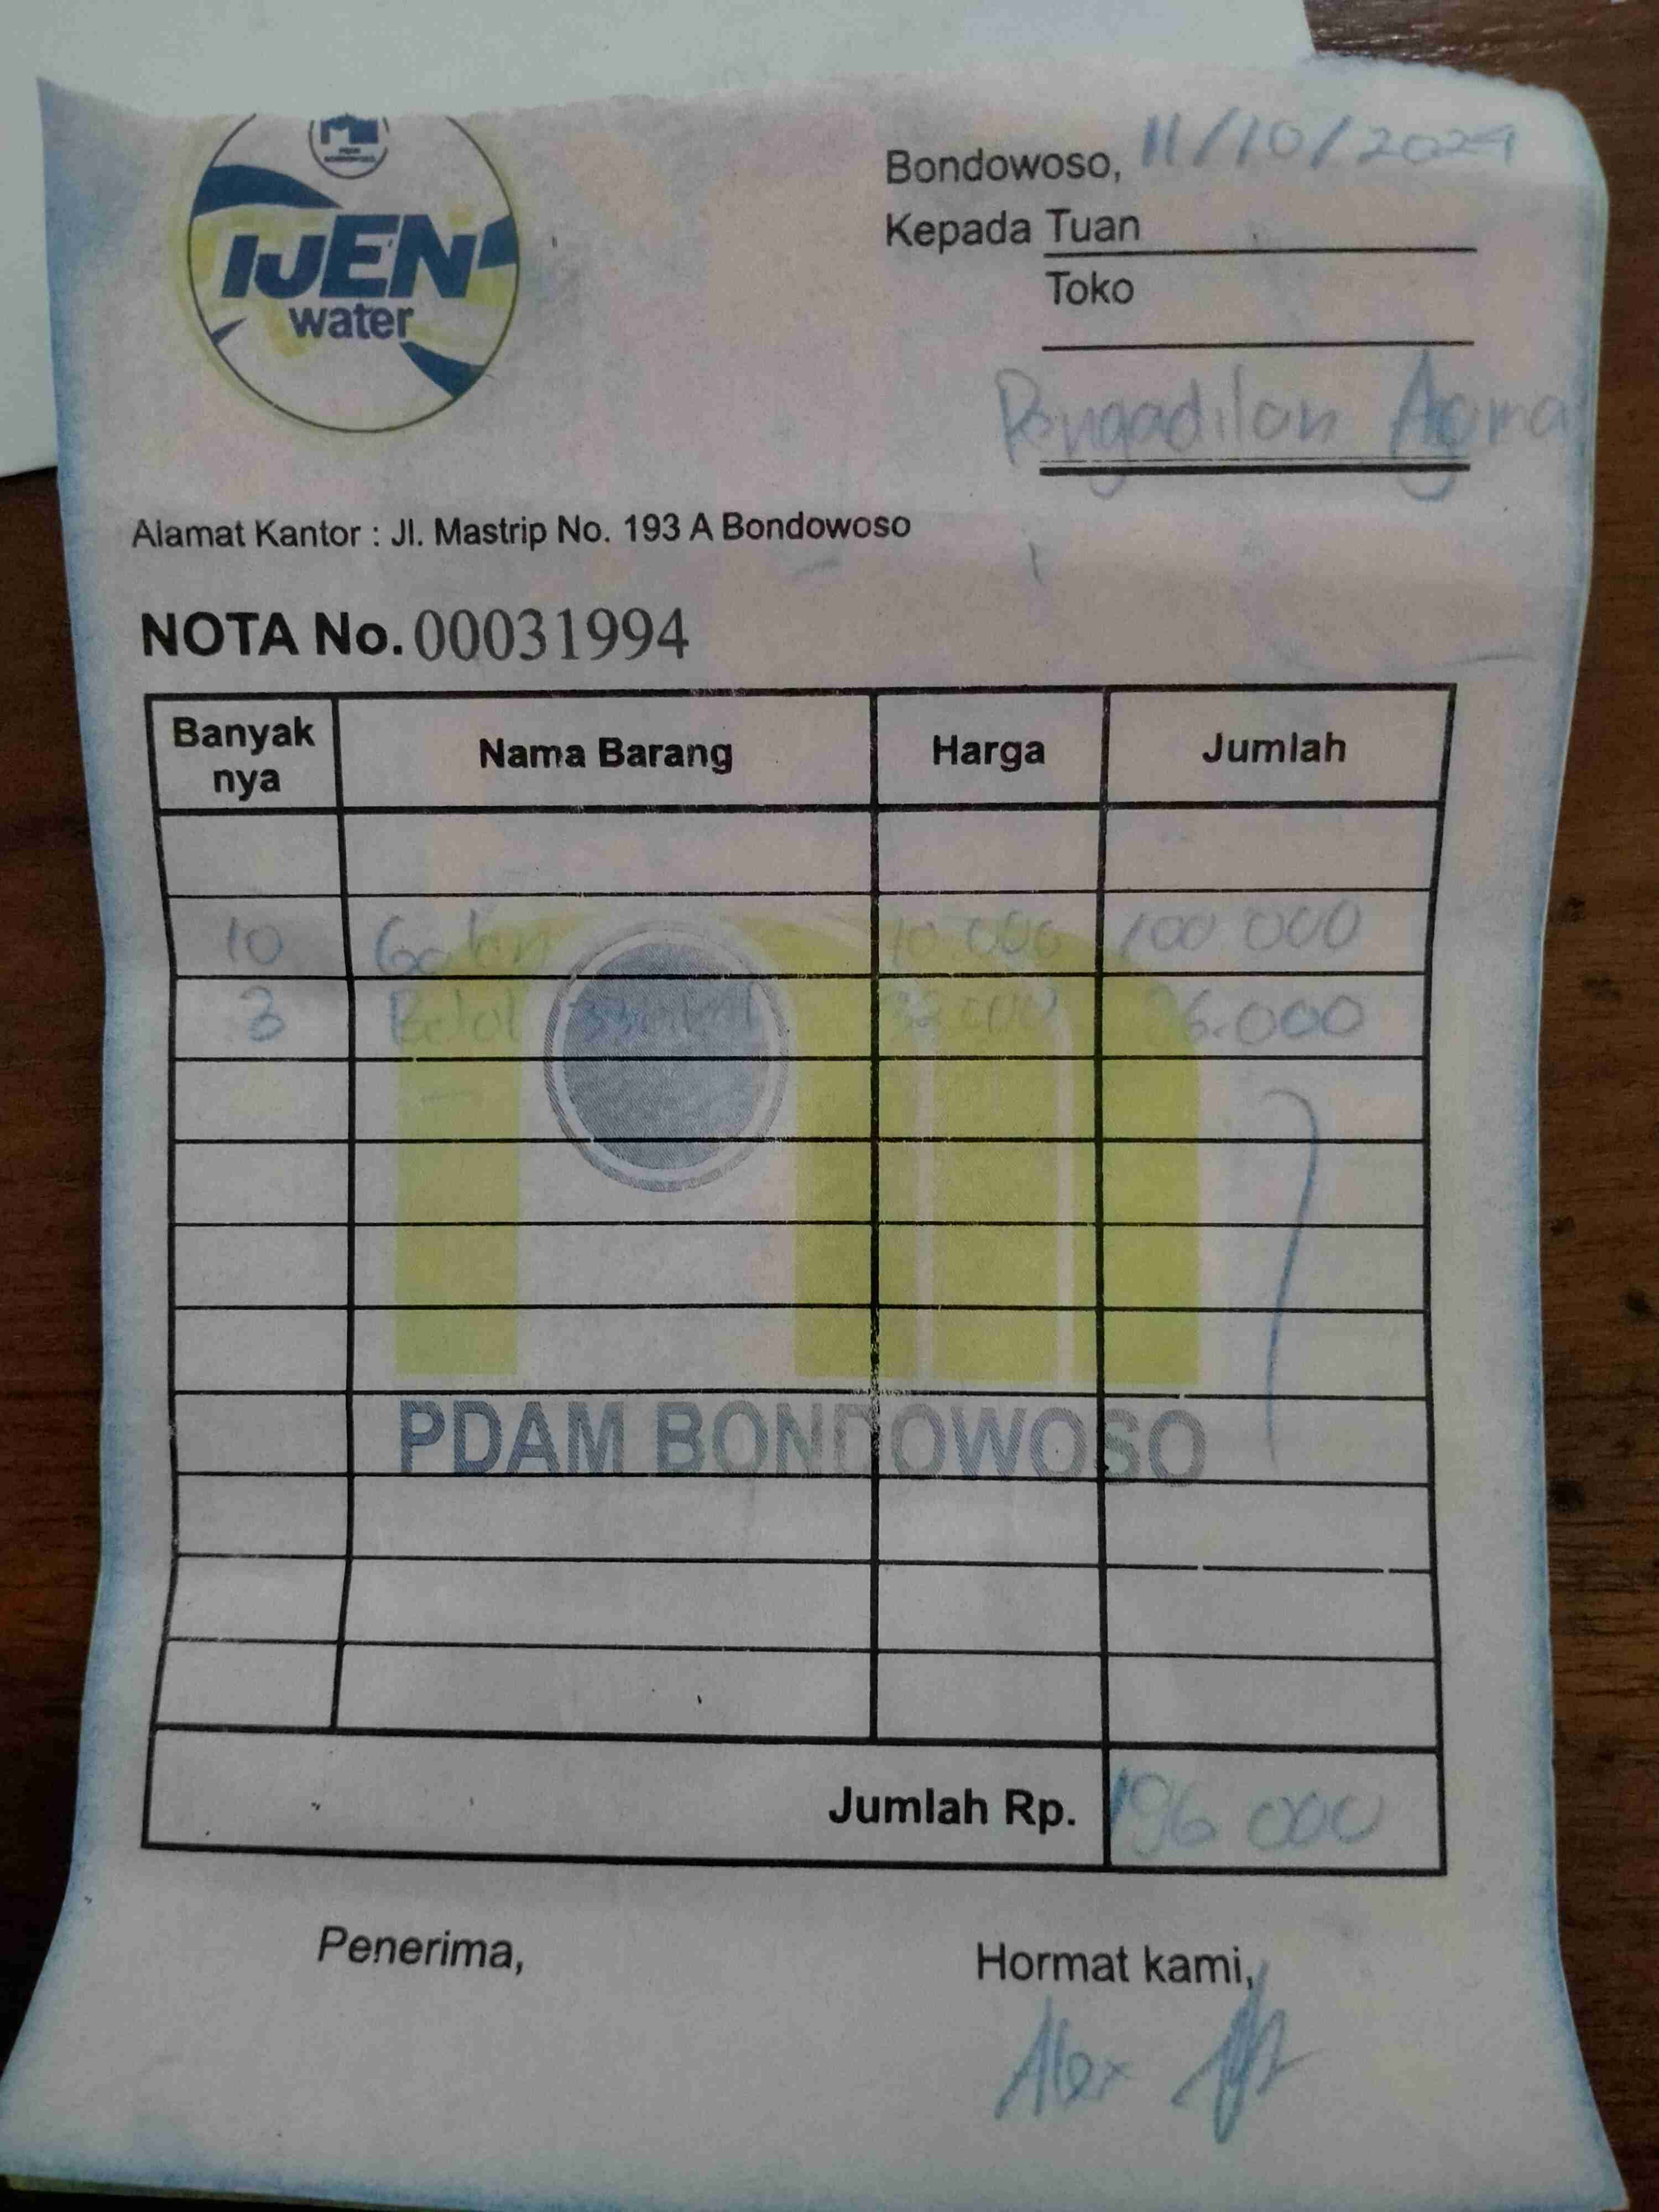 IJEN
water
Bondowoso, 11/10/2024
Kepada Tuan
Toko
Pengadilan Agama
Alamat Kantor : Jl. Mastrip No. 193 A Bondowoso
NOTA No. 00031994
Banyak nya Nama Barang Harga Jumlah
10 Galon 10.000 100 000
3 Botol 330 32.000 96.000
PDAM BONDOWOSO
Jumlah Rp. 196 000
Penerima, Hormat kami,
Alex